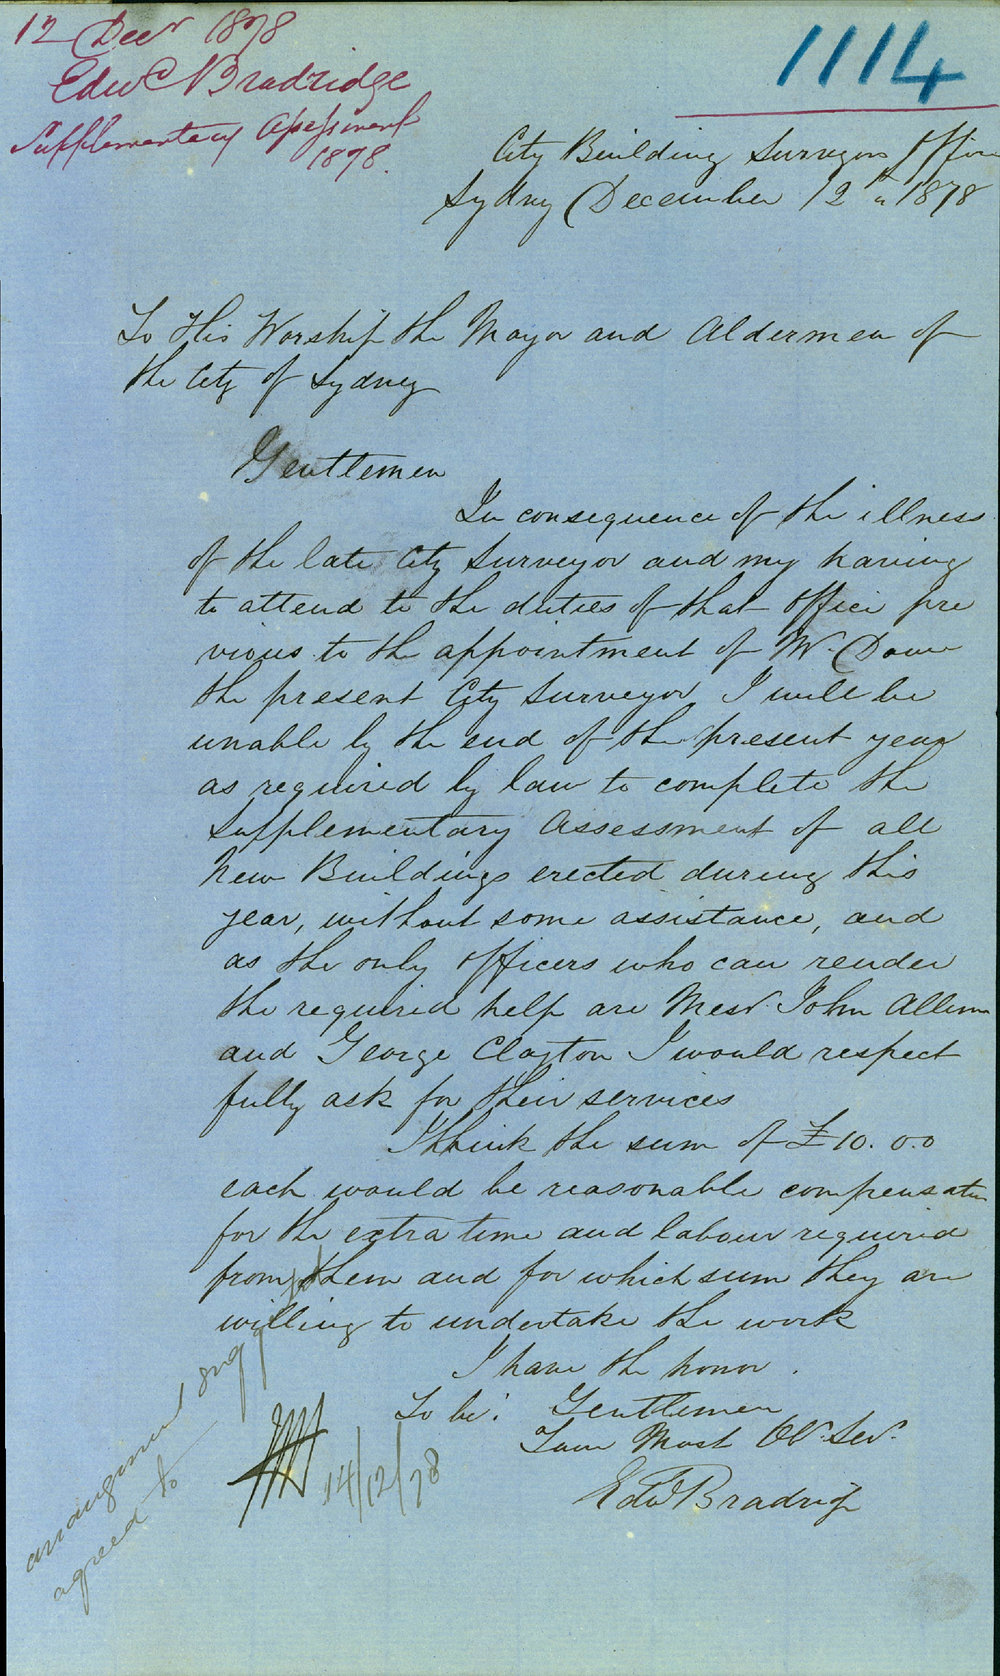 12 Decr 1878
Edwd Bradridge
Supplementary Assessment
1878.
1114
City Building Surveyors Office
Sydney December 12th 1878
To His Worship the Mayor and Aldermen of
the City of Sydney
Gentlemen
In consequence of the illness
of the late City Surveyor and my having
to attend to the duties of that Office pre
vious to the appointment of Mr.
the present City Surveyor I will be
unable by the end of the present year
as required by law to complete the
Supplementary Assessment of all
New Buildings erected during this
year, without some assistance, and
as the only officers who can render
the required help are Messr John
and George Clayton I would respect
fully ask for their services
I think the sum of £10.0.0
each would be reasonable compensation
for the extra time and labour required
from them and for which sum they are
willing to undertake the work
I have the honor.
To be. Gentlemen
Your Most Ob. Ser.
Edwd Bradridge
14/12/78
arrangement
agreed to